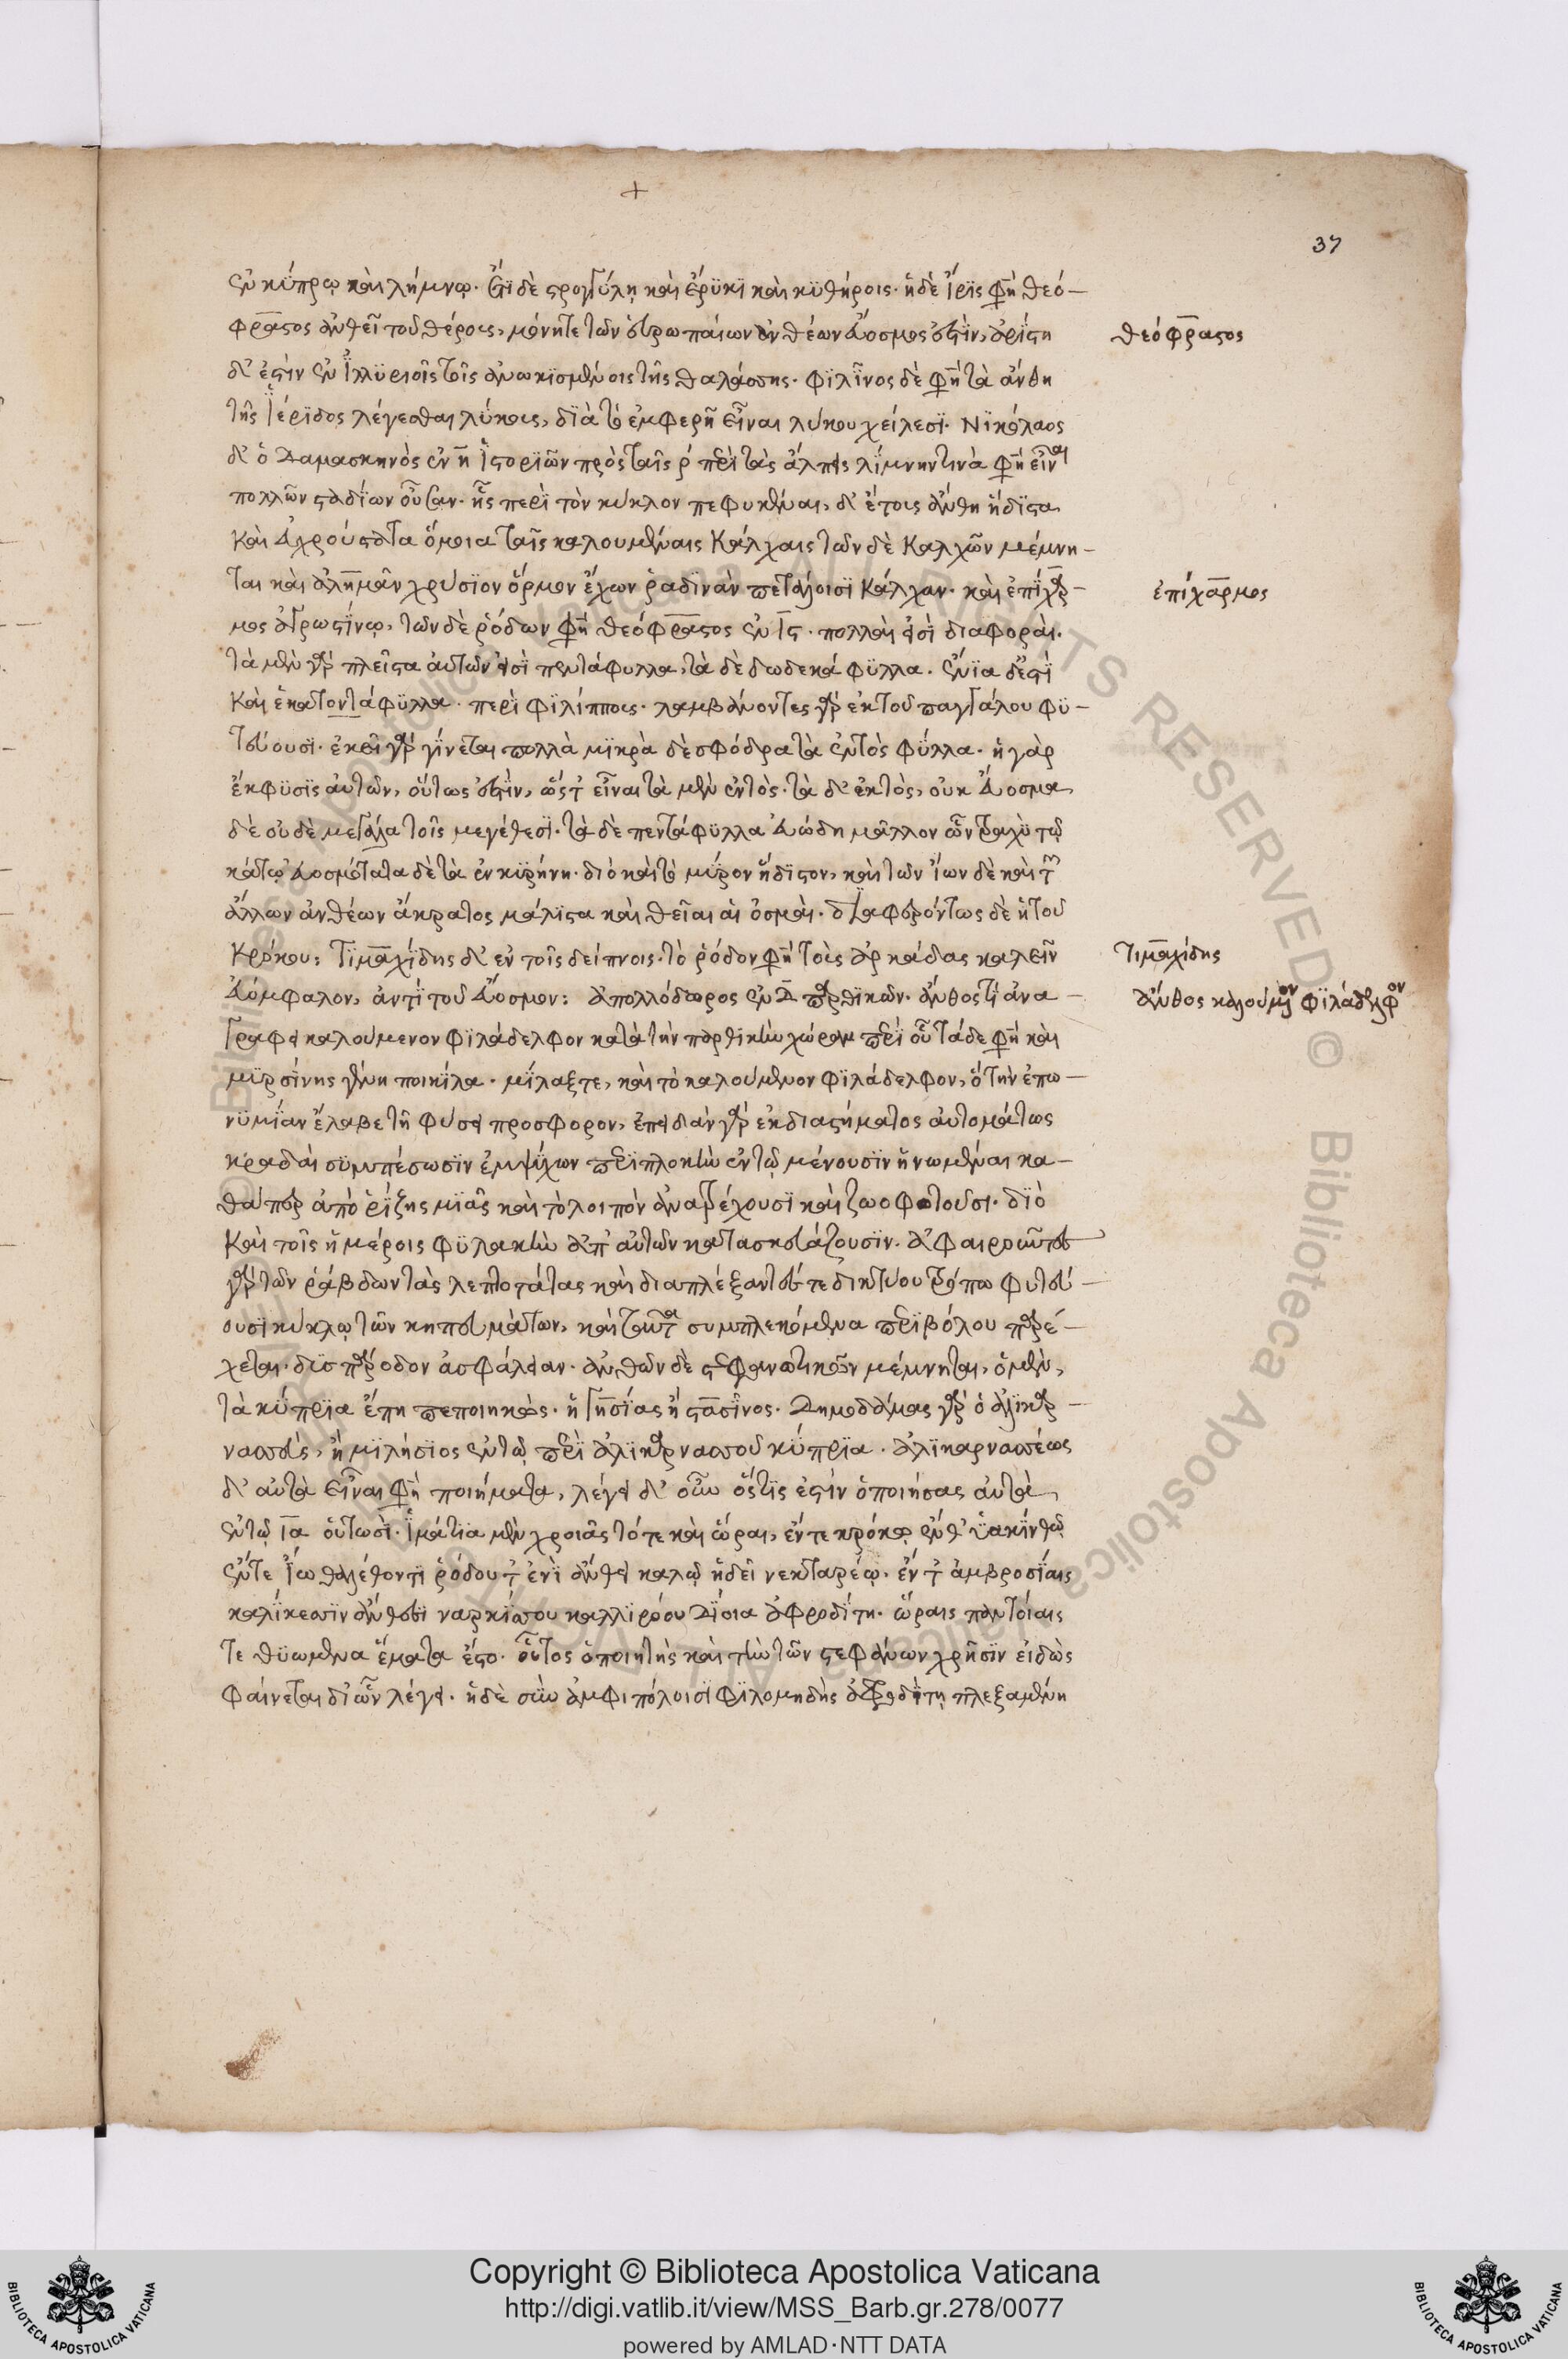 37
ἐν κύπρῳ καὶ λήμνῳ. ἔτι δὲ στρογγύλη καὶ ἐρϋκι καὶ κϋθήροις. ἡ δὲ ἶρϊς φησὶ θεό-
φραστος ἀνθεῖ τοῦ θέρους, μόνη τε τῶν εὐρωπαίων ἀνθέων εὔοσμος ἐστὶν, ἀρίστη
δ' ἐστὶν ἐν ἰλλϋριοῖς τοῖς ἀνωκισμένοις τῆς θαλάσσης. φϊλῖνος δὲ φησὶ τὰ ἄνθη
τῆς ἴριδος λέγεσθαι λύκους, διὰ τὸ ἐμφερῆ εἶναι λύκου χείλεσϊ. Νϊκόλαος
δ' ὁ Δαμασκηνὸς ἐν η ἱστοριῶν πρὸς ταῖς ρ περὶ τὰς ἄλπεις λίμνην τινὰ φησὶ εἶναι
πολλῶν σταδίων οὖσαν. ἧς περὶ τὸν κύκλον πεφυκέναι, δι' ἔτους ἄνθη ἥδιστα
καὶ εὐχρούστατα ὅμοια ταῖς καλουμέναις κάλχαις τῶν δὲ καλχῶν μέμνη-
ται καὶ ἀλκμὰν χρύσϊον ὅρμον ἔχων ῥαδϊνὰν πετάλοισϊ κάλχαν. καὶ ἐπίχαρ-
μος ἀγρωστίνῳ, τῶν δὲ ῥόδων φησὶ θεόφραστος ἐν ϛ. πολλαὶ εἰσὶ διαφοραὶ.
τὰ μὲν γὰρ πλεῖστα αὐτῶν εἰσὶ πεντάφυλλα, τὰ δὲ δωδεκάφϋλλα. ἔνϊα δ' ἐστὶ
καὶ ἑκατοντάφϋλλα. περὶ φϊλίππους. λαμβάνοντες γὰρ ἐκ τοῦ παγγαίου φϋ-
τεύουσϊ. ἐκεῖ γὰρ γίνεται πολλὰ μϊκρὰ δὲ σφόδρα τὰ ἐντὸς φύλλα. ἡ γὰρ
ἔκφϋσϊς αὐτῶν, οὕτως ἐστὶν, ὥστε εἶναι τὰ μὲν ἐντὸς. τὰ δ' ἐκτὸς, οὐκ εὔοσμα
δὲ οὐδὲ μεγάλα τοῖς μεγέθεσϊ. τὰ δὲ πεντάφϋλλα εὐώδη μᾶλλον ὧν τραχὺ τὸ
κάτω εὐοσμότατα δὲ τὰ ἐν κϋρήνη. διὸ καὶ τὸ μύρον ἥδϊστον, καὶ τῶν ἴων δὲ καὶ τῶν
ἄλλων ἀνθέων ἄκρατος μάλϊστα καὶ θεῖαι αἱ ὀσμαὶ. διαφερόντως δὲ ἡ τοῦ
κρόκου: Τϊμαχίδης δ' ἐν τοῖς δείπνοις. τὸ ῥόδον φησὶ τοὺς ἀρκάδας καλεῖν
εὐόμφαλον, ἀντὶ τοῦ εὔοσμον: ἀπολλόδωρος ἐν Δ παρθικῶν. ἄνθος τι ἀνα-
γράφει καλούμενον φϊλάδελφον κατὰ τὴν παρθικὴν χώραν περὶ οὗ τάδε φησὶ καὶ
μϋρσίνης γένη ποικίλα. μῖλαξ τε, καὶ τὸ καλούμενον φϊλάδελφον, ὃ τὴν ἐπω-
νϋμίαν ἔλαβε τῆ φύσει προσφορον, ἐπειδὰν γὰρ ἐκ διαστήματος αὐτομάτως
κραδαὶ σϋμπέσωσϊν ἐμψύχων περιπλοκὴν ἐν τῷ μένουσϊν ἡνωμέναι κα-
θάπερ ἀπὸ ῥίζης μϊᾶς καὶ τὸ λοιπὸν ἀνατρέχουσϊ καὶ ζωοφυτοῦσι. διὸ
καὶ τοῖς ἡμέροις φϋλακὴν ἀπ' αὐτῶν κατασκευάζουσϊν. ἀφαιροῦντες
γὰρ τῶν ῥάβδων τὰς λεπτοτάτας καὶ διαπλέξαντες τε δικτύου τρόπω φυτεύ-
ουσϊ κύκλῳ τῶν κηπευμάτων, καὶ ταῦτα συμπλεκόμενα περϊβόλου παρέ-
χεται. δυσπάροδον ἀσφάλειαν. ἀνθῶν δὲ στεφανωτικῶν μέμνηται, ὁ μὲν,
τὰ κύπρϊα ἔπη πεποιηκὼς. ἡγησίας ἢ στασῖνος. Δημοδάμας γὰρ ὁ ἁλϊκαρ-
νασσεὺς, ἢ μϊλήσϊος ἐν τῷ περὶ ἁλϊκαρνασσοῦ κύπρϊα. ἁλϊκαρνασσέως
δ' αὐτὰ εἶναι φησὶ ποιήματα, λέγει δ' οὖν ὅστϊς ἐστὶν ὁ ποιήσας αὐτὰ
ἐν τῷ ια οὑτωσὶ. ἱμάτϊα μὲν χροιᾶς τότε καὶ ὧραι, ἔν τε κρόκῳ ἔνθ' ὑακίνθῳ
ἔν τε ἴω θαλέθοντι ῥόδου τ' ἐνὶ ἄνθει καλῷ ἡδεῖ νεκταρέῳ. ἔν τ' ἀμβροσίαις
καλίκεσσϊν ἄνθεσϊ ναρκίσσου καλλϊρόου δἵοια ἀφροδίτη. ὥραις παντοίαις
τε θϋωμένα εἵματα ἕστο. οὗτος ὁ ποιητὴς καὶ τὴν τῶν στεφάνων χρῆσϊν εἰδὼς
φαίνεται δι' ὧν λέγει. ἡ δὲ σὺν ἀμφιπόλοισϊ φϊλομηδὴς ἀφροδίτη πλεξαμένη
θεόφραστος
ἐπίχαρμος
Τιμαχίδης
ἄνθος καλούμενον φϊλάδελφον
Copyright © Biblioteca Apostolica Vaticana
http://digi.vatlib.it/view/MSS_Barb.gr.278/0077
powered by AMLAD·NTT DATA